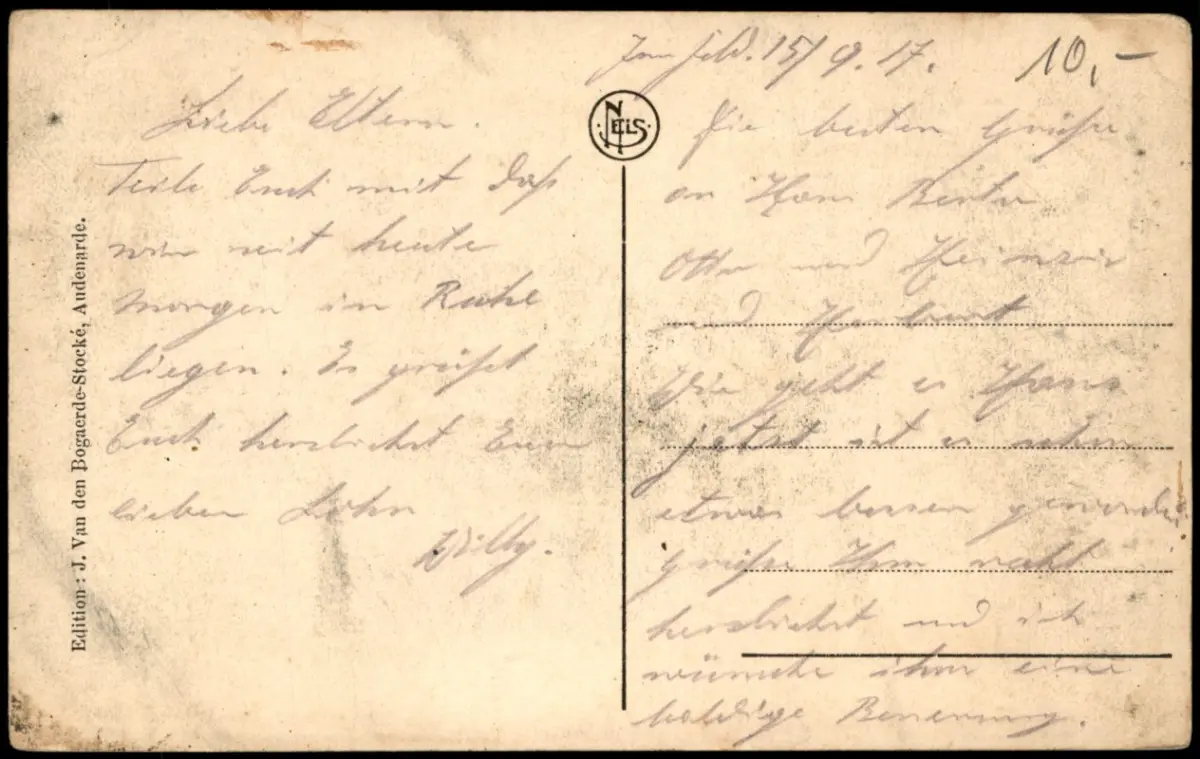 Im Feld. 15/9.17.
10,-
Liebe Eltern.
Teile Euch mit daß
wir seit heute
morgen in Ruhe
liegen. Es grüßt
Euch herzlichst Euer
lieber Sohn
Willy.
Die besten Grüße
an Hans Berta
Otto und Heinrich
und Herbert
Wie geht es Hans
jetzt ist es schon
etwas besser geworden
grüße Ihm recht
herzlichst und ich
wünsche ihm eine
baldige Besserung.
NELS
Edition : J. Van den Bogaerde-Stocké, Audenarde.